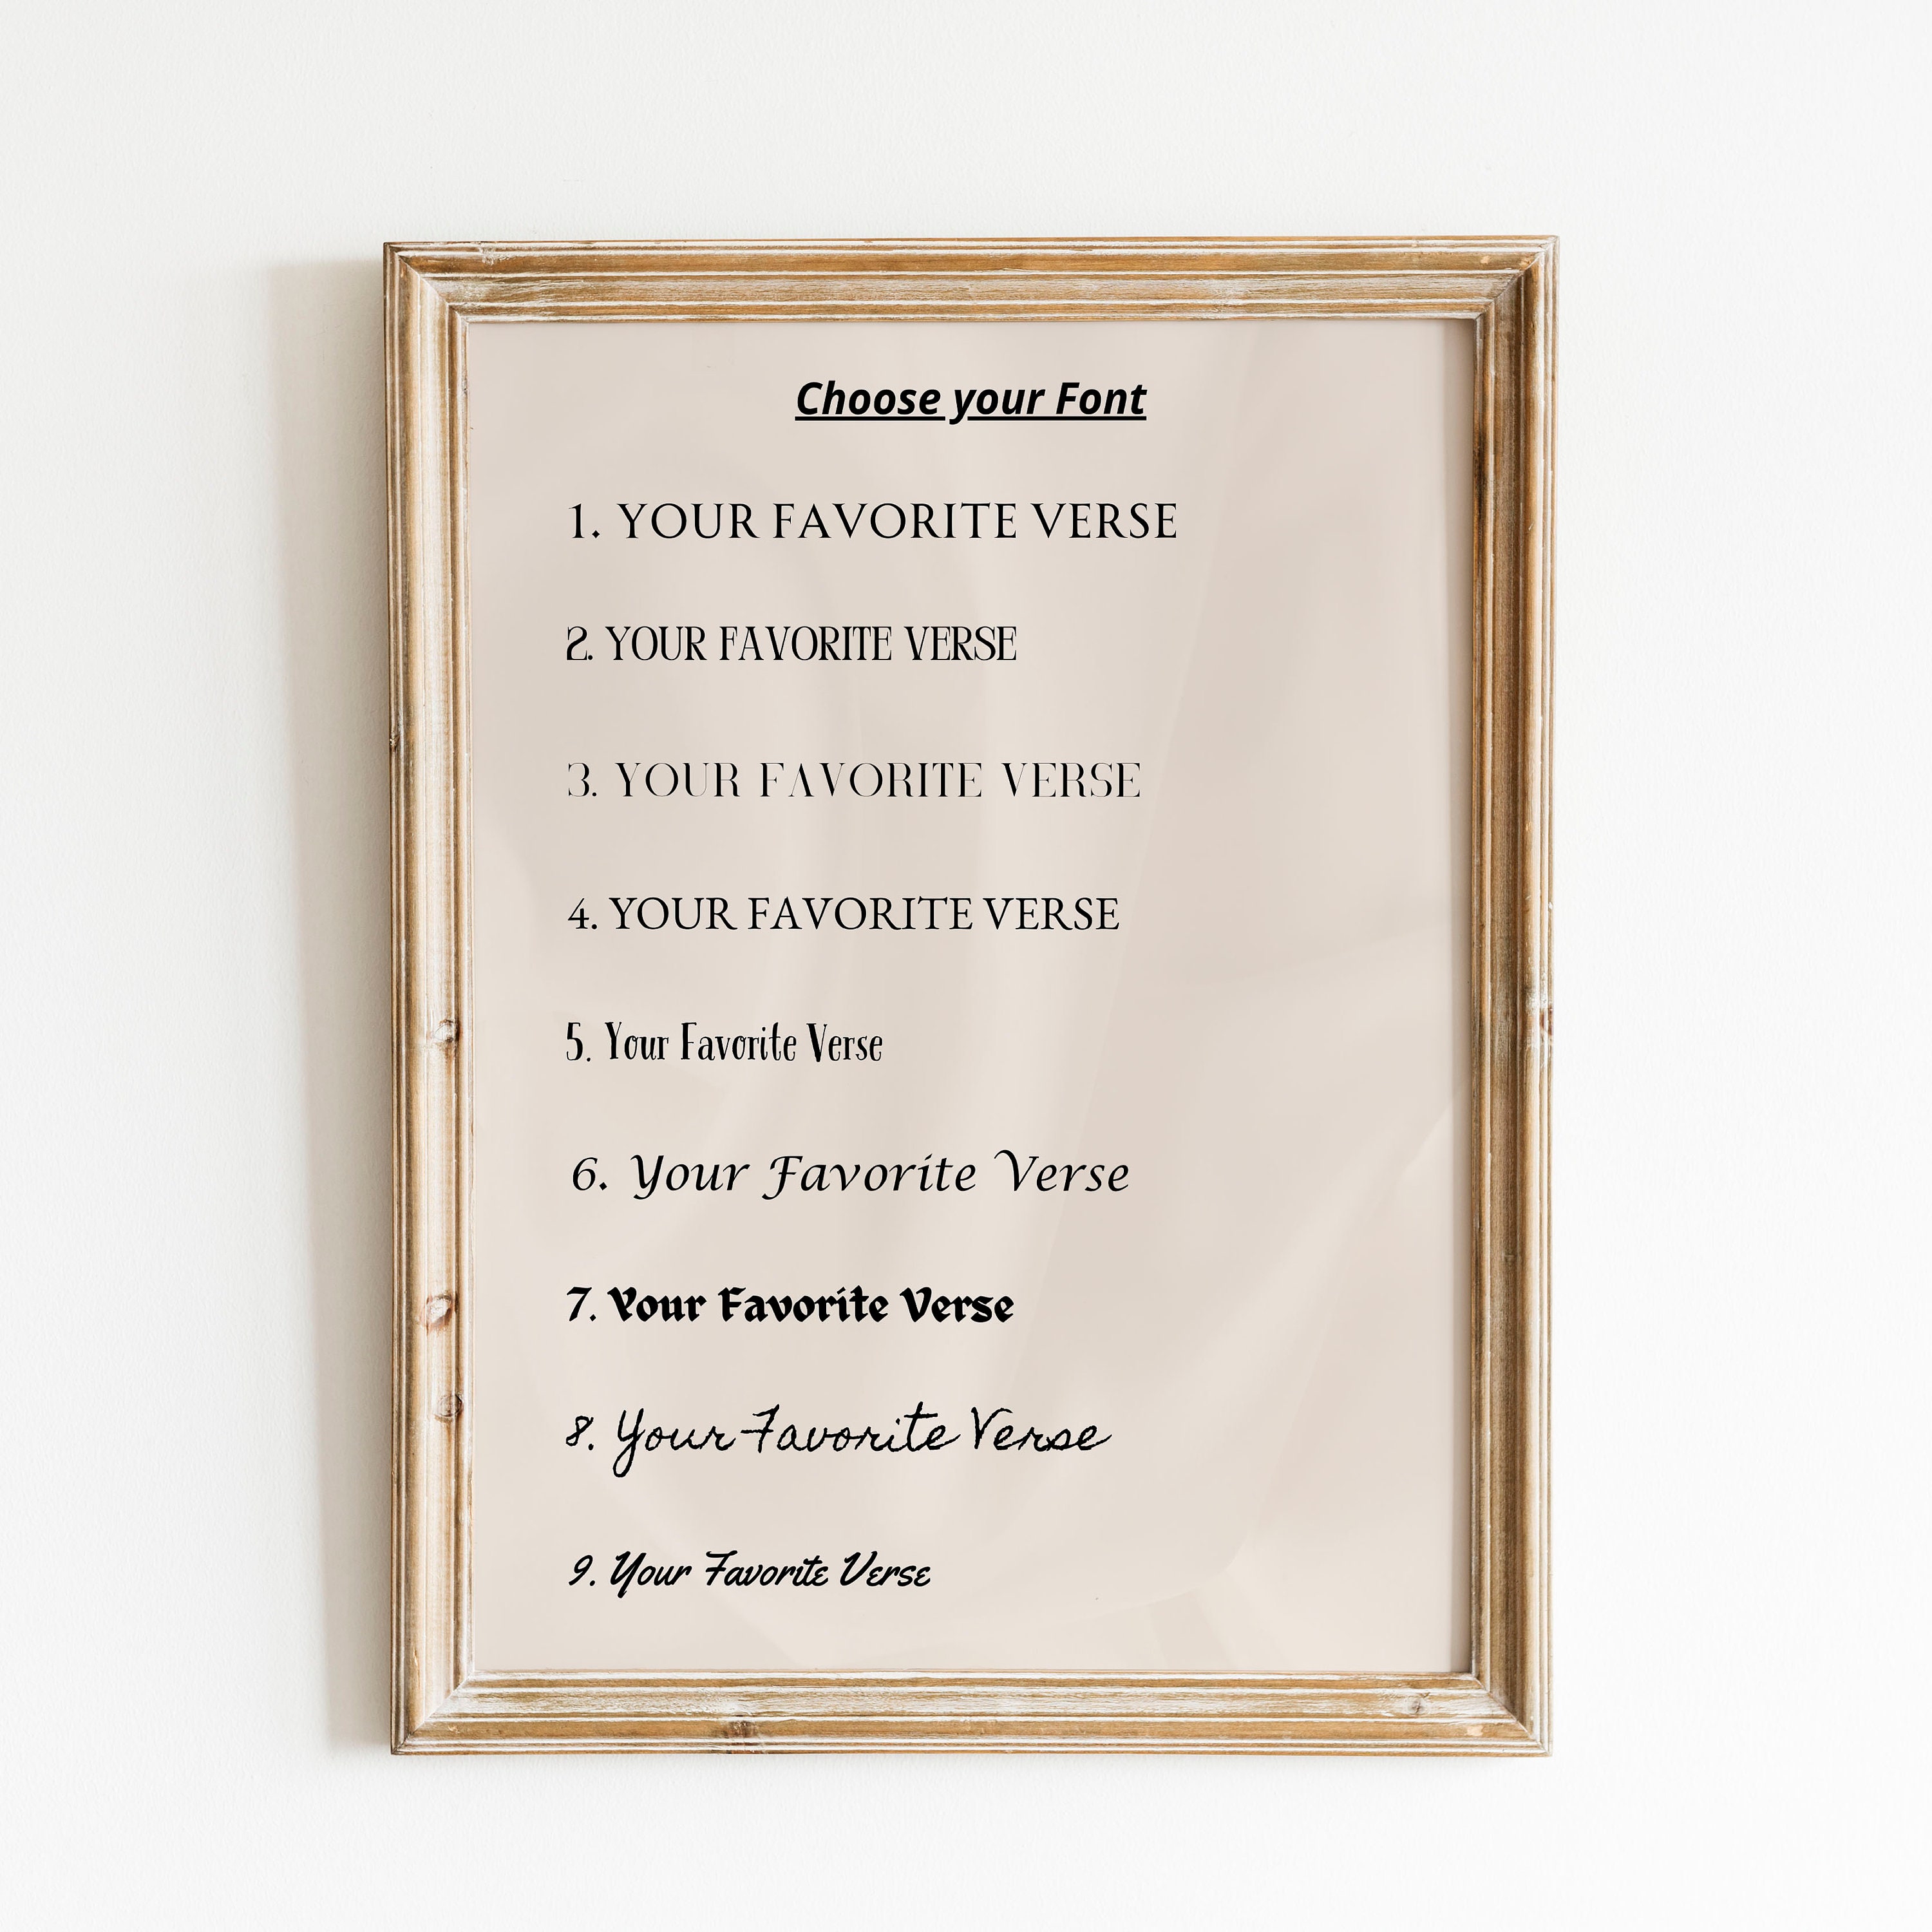 Choose your Font
1. YOUR FAVORITE VERSE
2. YOUR FAVORITE VERSE
3. YOUR FAVORITE VERSE
4. YOUR FAVORITE VERSE
5. Your Favorite Verse
6. Your Favorite Verse
7. Your Favorite Verse
8. Your Favorite Verse
9. Your Favorite Verse